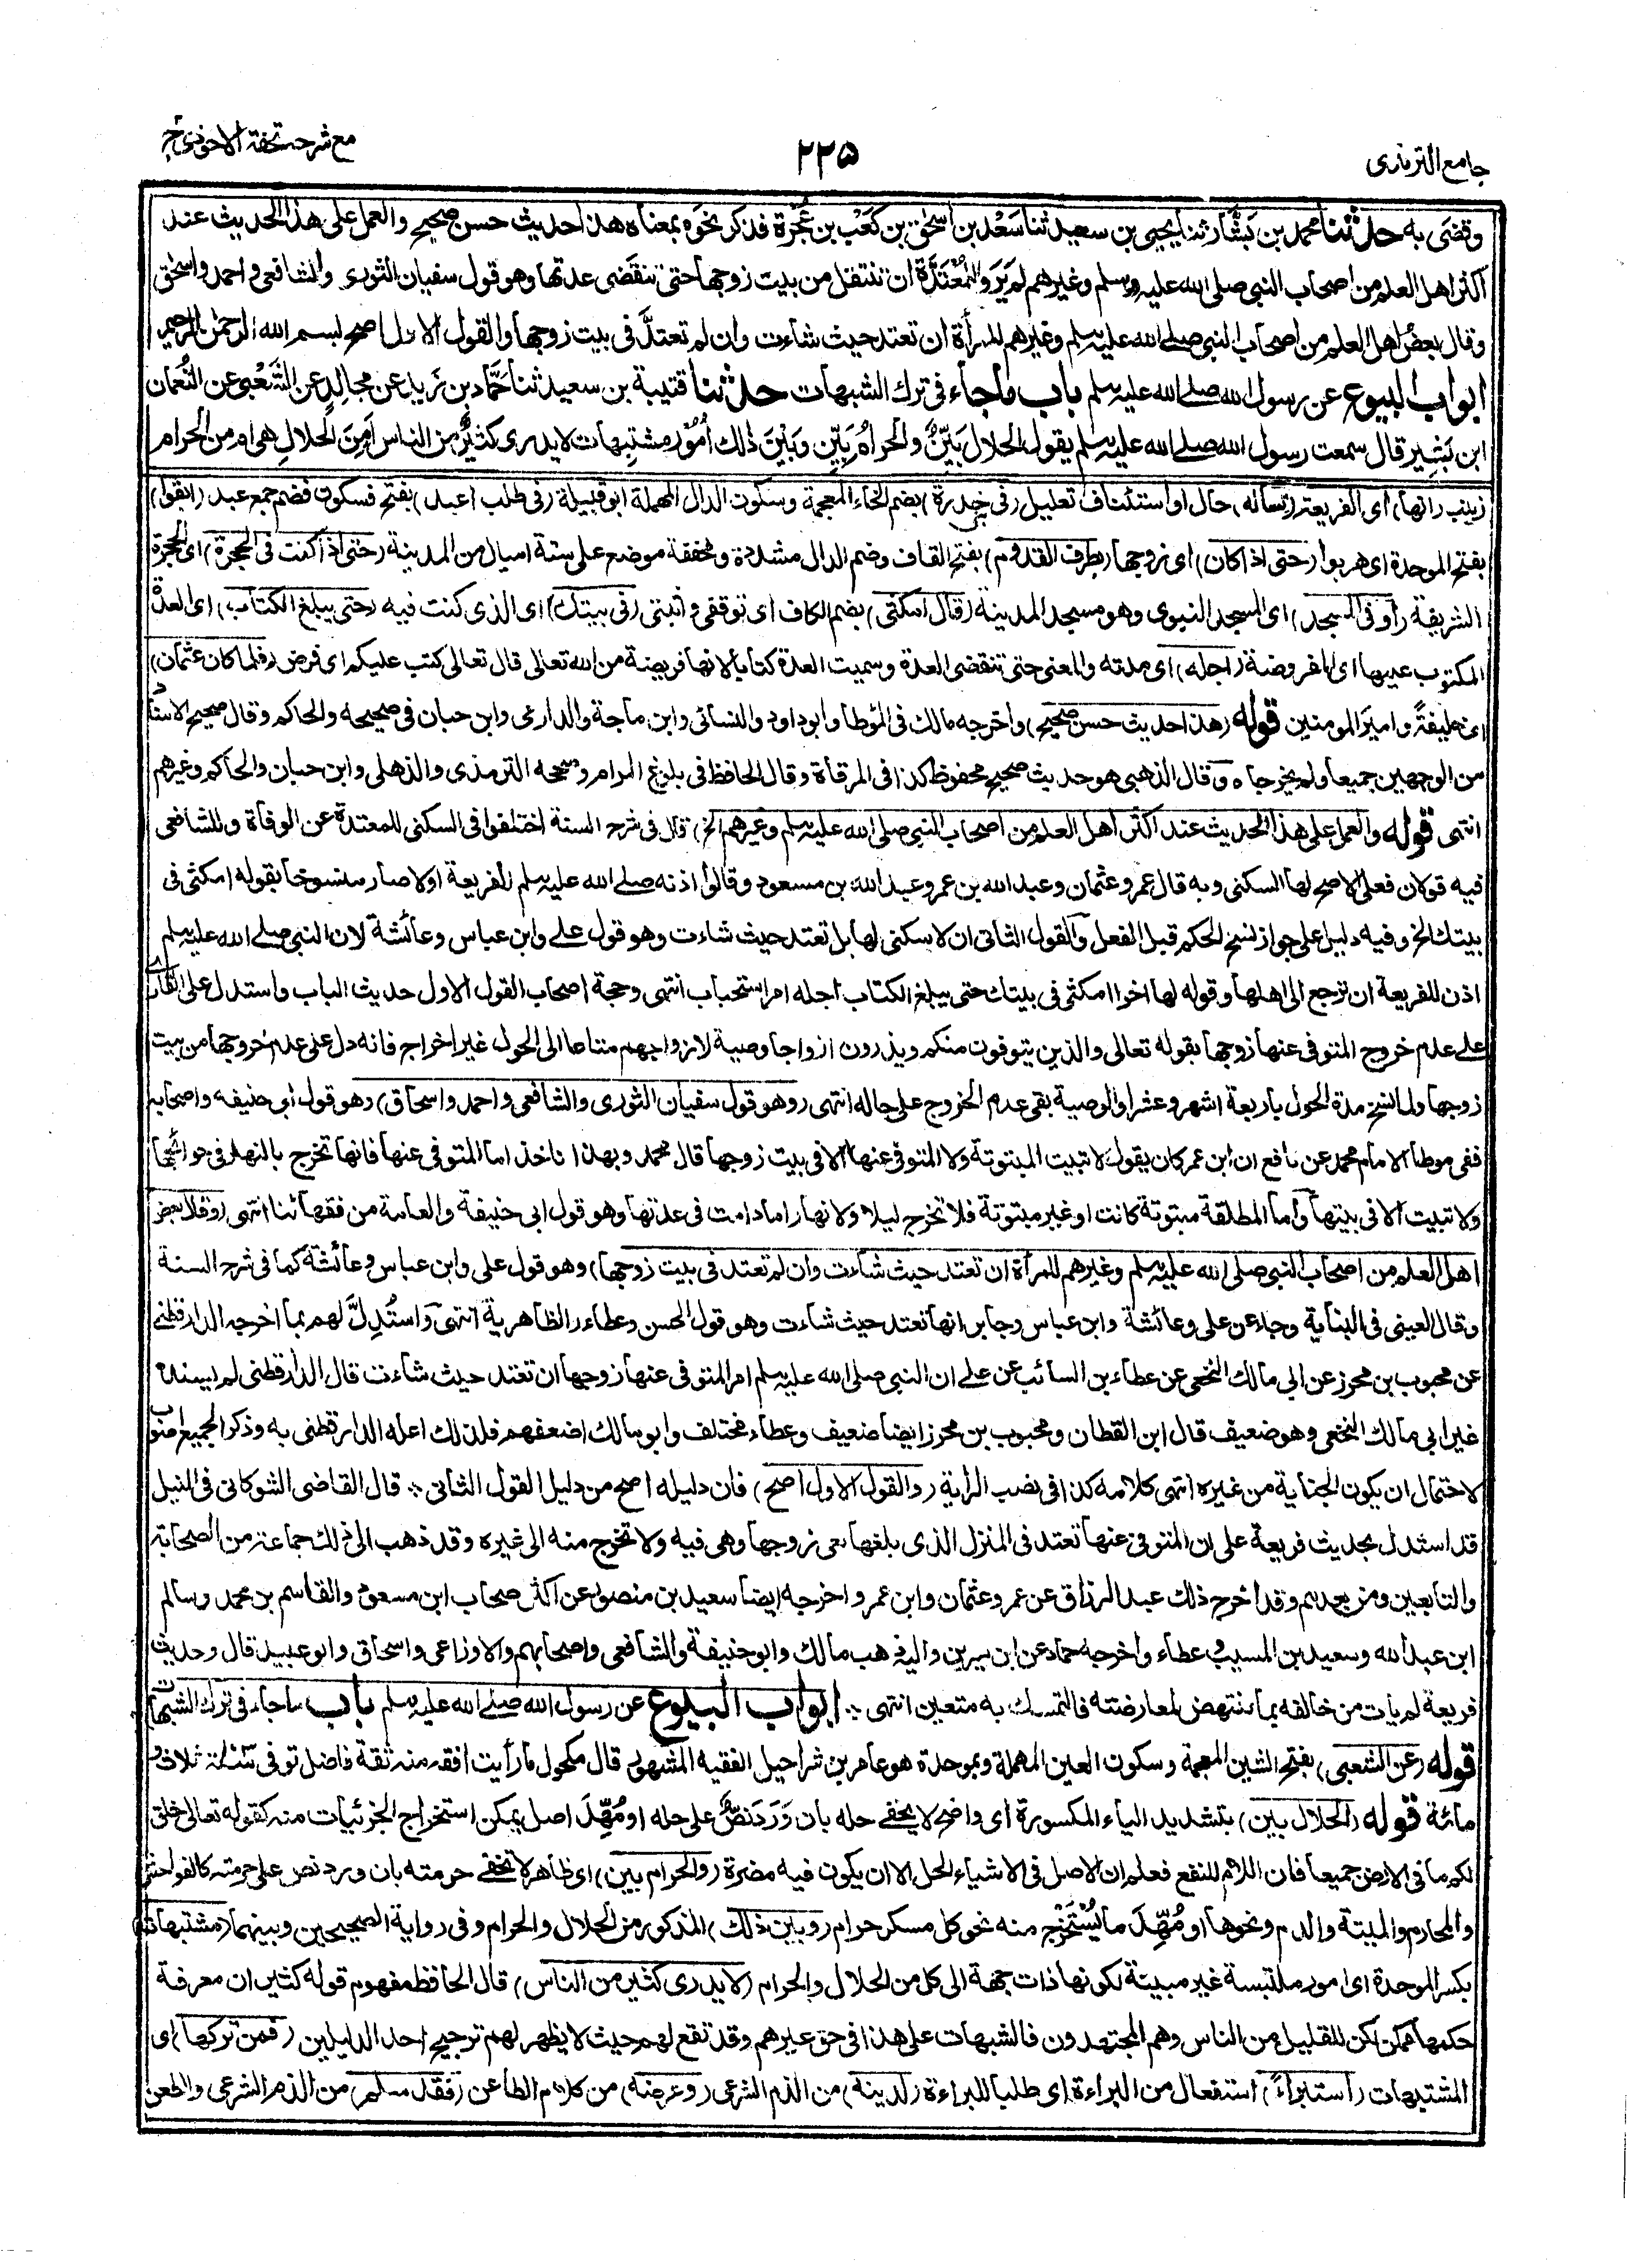 جامع الترمذى
٢٢٥
مع شرحہ تحفة الاحوذى ج
وقضى به حدثنا محمد بن بَشَّار ثنا يحيى بن سعيد ثنا سَعْد بن اسحٰق بن كَعْب بن عُجْرة فذكر نحوه بمعناه هذا حديث حسن صحيح والعمل على هذا الحديث عند
اكثر اهل العلم من اصحاب النبى صلى الله عليه وسلم وغيرهم لم يَرَوا للمُعْتَدَّة ان تنتقل من بيت زوجها حتى تنقضى عدتها وهو قول سفيان الثورى والشافعى واحمد واسحٰق
وقال بعض اهل العلم من اصحاب النبى صلى الله عليه وسلم وغيرهم للمرأة ان تعتد حيث شاءت وان لم تعتدَّ فى بيت زوجها والقول الاول اصح بسم الله الرحمٰن الرحيم
ابواب البيوع عن رسول الله صلى الله عليه وسلم باب ماجاء فى ترك الشبهات حدثنا قتيبة بن سعيد ثنا حَمَّاد بن زيد عن مجالدٍ عن الشَّعْبى عن النُّعمان
ابن بَشِير قال سمعت رسول الله صلى الله عليه وسلم يقول الحلال بَيّنٌ والحرامُ بَيّن وبَيْنَ ذلك اُمُوْر مشتبِهات لا يدرى كثيرٌ من الناس اَمِنَ الحلالِ هى ام من الحرام
زينب (انها) اى الفريعة (تسأله) حال او استئناف تعليل (فى خدرة) بضم الخاء المعجمة وسكون الدال المهملة ابو قبيلة (فى طلب اعبد) بفتح فسكون فضم جمع عبد (ابقوا)
بفتح الموحدة اى هربوا (حتى اذا كان) اى زوجها (بطرف القدوم) بفتح القاف وضم الدال مشددة ومخففة موضع على ستة اميال من المدينة (حتى اذا كنت فى الحجرة) اى الحجرة
الشريفة (او فى المسجد) اى المسجد النبوى وهو مسجد المدينة (قال امكثى) بضم الكاف اى توقفى واثبتى (فى بيتك) اى الذى كنت فيه (حتى يبلغ الكتاب) اى العدة
المكتوب عليها اى المفروضة (اجله) اى مدته والمعنى حتى تنقضى العدة وسميت العدة كتابا لانها فريضة من الله تعالى قال تعالى كتب عليكم اى فرض (فلما كان عثمان)
اى خليفةً وامير المومنين قوله (هذا حديث حسن صحيح) واخرجه مالك فى الموطا وابو داود والنسائى وابن ماجة والدارمى وابن حبان فى صحيحه والحاكم وقال صحيح الاسناد
من الوجهين جميعا ولم يخرجاه وقال الذهبى هو حديث صحيح محفوظ كذا فى المرقاة وقال الحافظ فى بلوغ المرام وصححه الترمذى والذهلى وابن حبان والحاكم وغيرهم
انتهى قوله (والعمل على هذا الحديث عند اكثر اهل العلم من اصحاب النبى صلى الله عليه وسلم وغيرهم الخ) قال فى شرح السنة اختلفوا فى السكنى للمعتدة عن الوفاة وللشافعى
فيه قولان فعلى الاصح لها السكنى وبه قال عمر وعثمان وعبد الله بن عمر وعبد الله بن مسعود وقالوا اذنه صلى الله عليه وسلم للفريعة اولا صار منسوخا بقوله امكثى فى
بيتك الخ وفيه دليل على جواز نسخ الحكم قبل الفعل والقول الثانى ان لا سكنى لها بل تعتد حيث شاءت وهو قول على وابن عباس وعائشة لان النبى صلى الله عليه وسلم
اذن للفريعة ان ترجع الى اهلها وقوله لها اخرا امكثى فى بيتك حتى يبلغ الكتاب اجله امر استحباب انتهى وحجة اصحاب القول الاول حديث الباب واستدل على القارى
على عدم خروج المتوفى عنها زوجها بقوله تعالى والذين يتوفون منكم ويذرون ازواجا وصية لازواجهم متاعا الى الحول غير اخراج فانه دل على عدم خروجها من بيت
زوجها ولما نسخ مدة الحول باربعة اشهر وعشرا والوصية بقى عدم الخروج على حاله انتهى (وهو قول سفيان الثورى والشافعى واحمد واسحاق) وهو قول أبى حنيفه واصحابه
ففى موطا الامام محمد عن نافع ان ابن عمر كان يقول لا تبيت المبتوتة ولا المتوفى عنها الا فى بيت زوجها قال محمد وبهذا ناخذ اما المتوفى عنها فانها تخرج بالنهار فى حوائجها
ولا تبيت الا فى بيتها وأما المطلقة مبتوتة كانت او غير مبتوتة فلا تخرج ليلا ولا نهارا مادامت فى عدتها وهو قول ابى حنيفة والعامة من فقهائنا انتهى (وقال بعض
اهل العلم من اصحاب النبى صلى الله عليه وسلم وغيرهم للمرأة ان تعتد حيث شاءت وان لم تعتد فى بيت زوجها) وهو قول على وابن عباس وعائشة كما فى شرح السنة
وقال العينى فى البناية وجاء عن على وعائشة وابن عباس وجابر انها تعتد حيث شاءت وهو قول الحسن وعطاء والظاهرية انتهى واستُدِلَّ لهم بما اخرجه الدارقطنى
عن محبوب بن محرز عن ابى مالك النخعى عن عطاء بن السائب عن على ان النبى صلى الله عليه وسلم امر المتوفى عنها زوجها ان تعتد حيث شاءت قال الدارقطنى لم يسنده
غير ابى مالك النخعى وهو ضعيف قال ابن القطان ومحبوب بن محرز ايضا ضعيف وعطاء مختلف وابو مالك اضعفهم فلذلك اعله الدارقطنى به وذكر الجميع اصوب
لاحتمال ان يكون الجناية من غيره انتهى كلامه كذا فى نصب الراية (والقول الاول اصح) فان دليله اصح من دليل القول الثانى ؞ قال القاضى الشوكانى فى النيل
قد استدل بحديث فريعة على ان المتوفى عنها تعتد فى المنزل الذى بلغها نعى زوجها وهى فيه ولا تخرج منه الى غيره وقد ذهب الى ذلك جماعة من الصحابة
والتابعين ومن بعدهم وقد اخرج ذلك عبد الرزاق عن عمر وعثمان وابن عمر واخرجه ايضا سعيد بن منصور عن اكثر اصحاب ابن مسعود والقاسم بن محمد وسالم
ابن عبد الله وسعيد بن المسيب وعطاء واخرجه حماد عن ابن سيرين واليه ذهب مالك وابو حنيفة والشافعى واصحابهم والاوزاعى واسحاق وابو عبيد قال وحديث
فريعة لم يأت من خالفه بما ينتهض لمعارضته فالتمسك به متعين انتهى ؞ ابواب البيوع عن رسول الله صلى الله عليه وسلم باب ماجاء فى ترك الشبهات
قوله (عن الشعبى) بفتح الشين المعجمة وسكون العين المهملة وبموحدة هو عامر بن شراحيل الفقيه المشهور قال مكحول ما رأيت افقه منه ثقة فاضل توفى سنة ثلاث و
مائة قوله (الحلال بين) بتشديد الياء المكسورة اى واضح لا يخفى حله بان وَرَدَ نصٌّ على حله او مُهِّدَ اصل يمكن استخراج الجزئيات منه كقوله تعالى خلق
لكم ما فى الارض جميعا فان اللام للنفع فعلم ان الاصل فى الاشياء الحل الا ان يكون فيه مضرة (والحرام بين) اى ظاهر لا تخفى حرمته بان ورد نص على حرمته كالفواحش
والمحارم والميتة والدم ونحوها او مُهِّدَ ما يُسْتَخْرَج منه نحو كل مسكر حرام (وبين ذلك) المذكور من الحلال والحرام وفى رواية الصحيحين وبينهما (مشتبهات)
بكسر الموحدة اى امور ملتبسة غير مبينة لكونها ذات جهة الى كل من الحلال والحرام (لا يدرى كثير من الناس) قال الحافظ مفهوم قوله كثير ان معرفة
حكمها ممكن لكن للقليل من الناس وهم المجتهدون فالشبهات على هذا فى حق غيرهم وقد تقع لهم حيث لا يظهر لهم ترجيح احد الدليلين (فمن تركها) اى
المشتبهات (استبراءً) استفعال من البراءة اى طلبا للبراءة (لدينه) من الذم الشرعى (وعرضه) من كلام الطاعن (فقد سلم) من الذم الشرعى والطعن